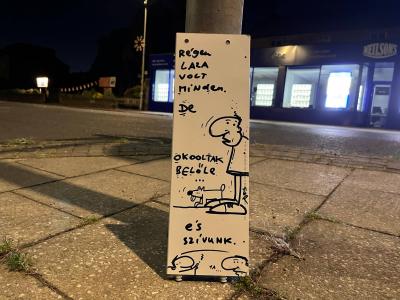 Régen
LALA
VOLT
MINDEN.
De
OKOOLTAK
BELŐLE
...
és
SZÍVUNK.
NELSONS